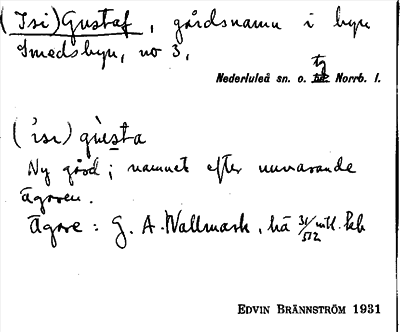 (Isi) Gustaf, gårdsnamn i byn
Smedsbyn, no 3,
tg
Nederluleå sn. o. Norrb. l.
(ìsi) gùsta
Ny gård; namnet efter nuvarande
ägaren.
Ägare: G. A. Wallmark, hä 31/512 mtl.
EDVIN BRÄNNSTRÖM 1931